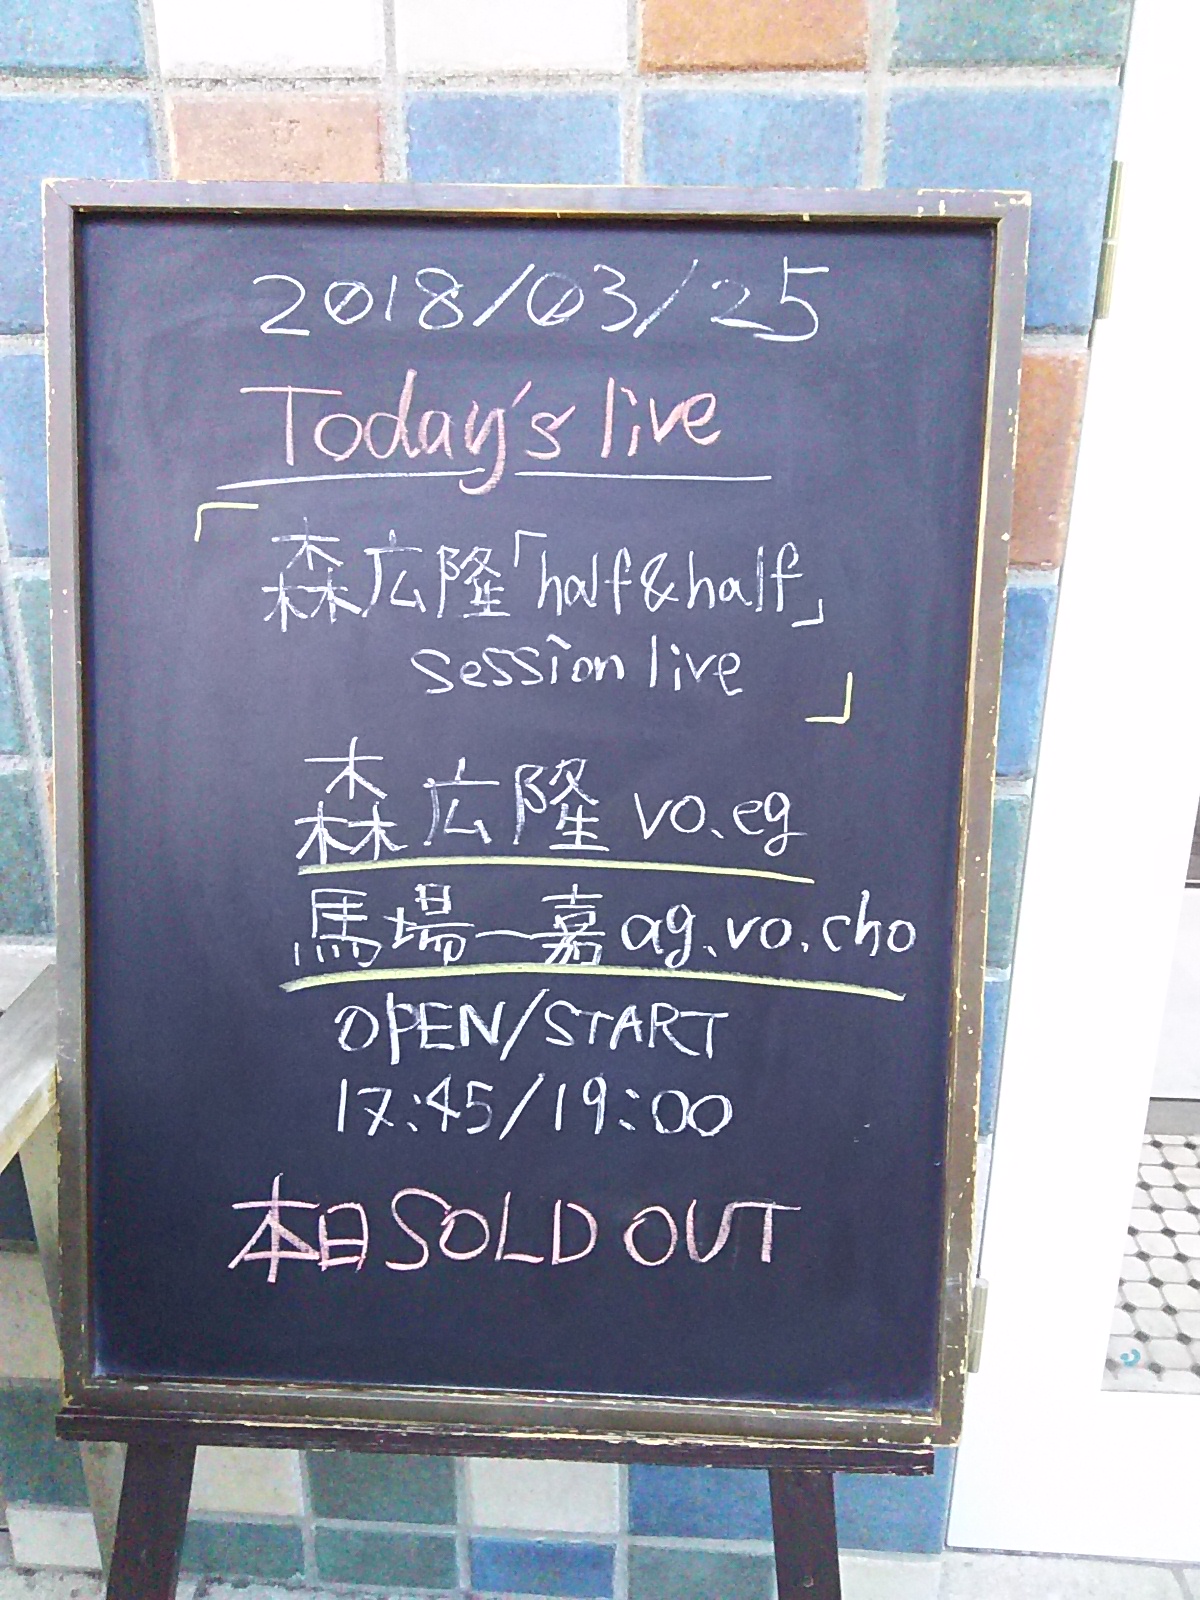 2018/03/25
Today's live
「
森広隆「half&half」
session live
」
森広隆 vo.eg
馬場一嘉 ag.vo.cho
OPEN/START
17:45/19:00
本日 SOLD OUT